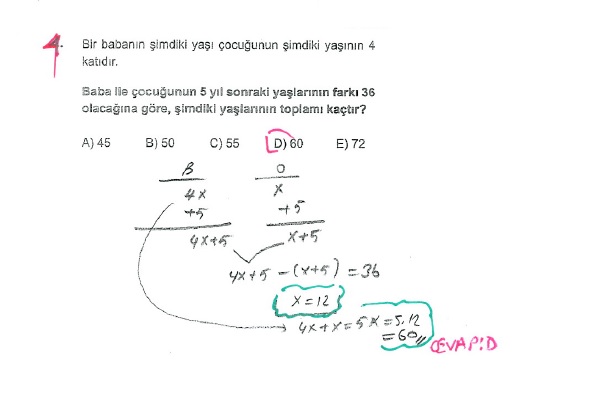 4. Bir babanın şimdiki yaşı çocuğunun şimdiki yaşının 4
katıdır.
Baba ile çocuğunun 5 yıl sonraki yaşlarının farkı 36
olacağına göre, şimdiki yaşlarının toplamı kaçtır?
A) 45 B) 50 C) 55 D) 60 E) 72
B O
4x x
+5 +5
4x+5 x+5
4x+5 -(x+5) = 36
x=12
4x+x=5x=5.12
=60//
CEVAP:D